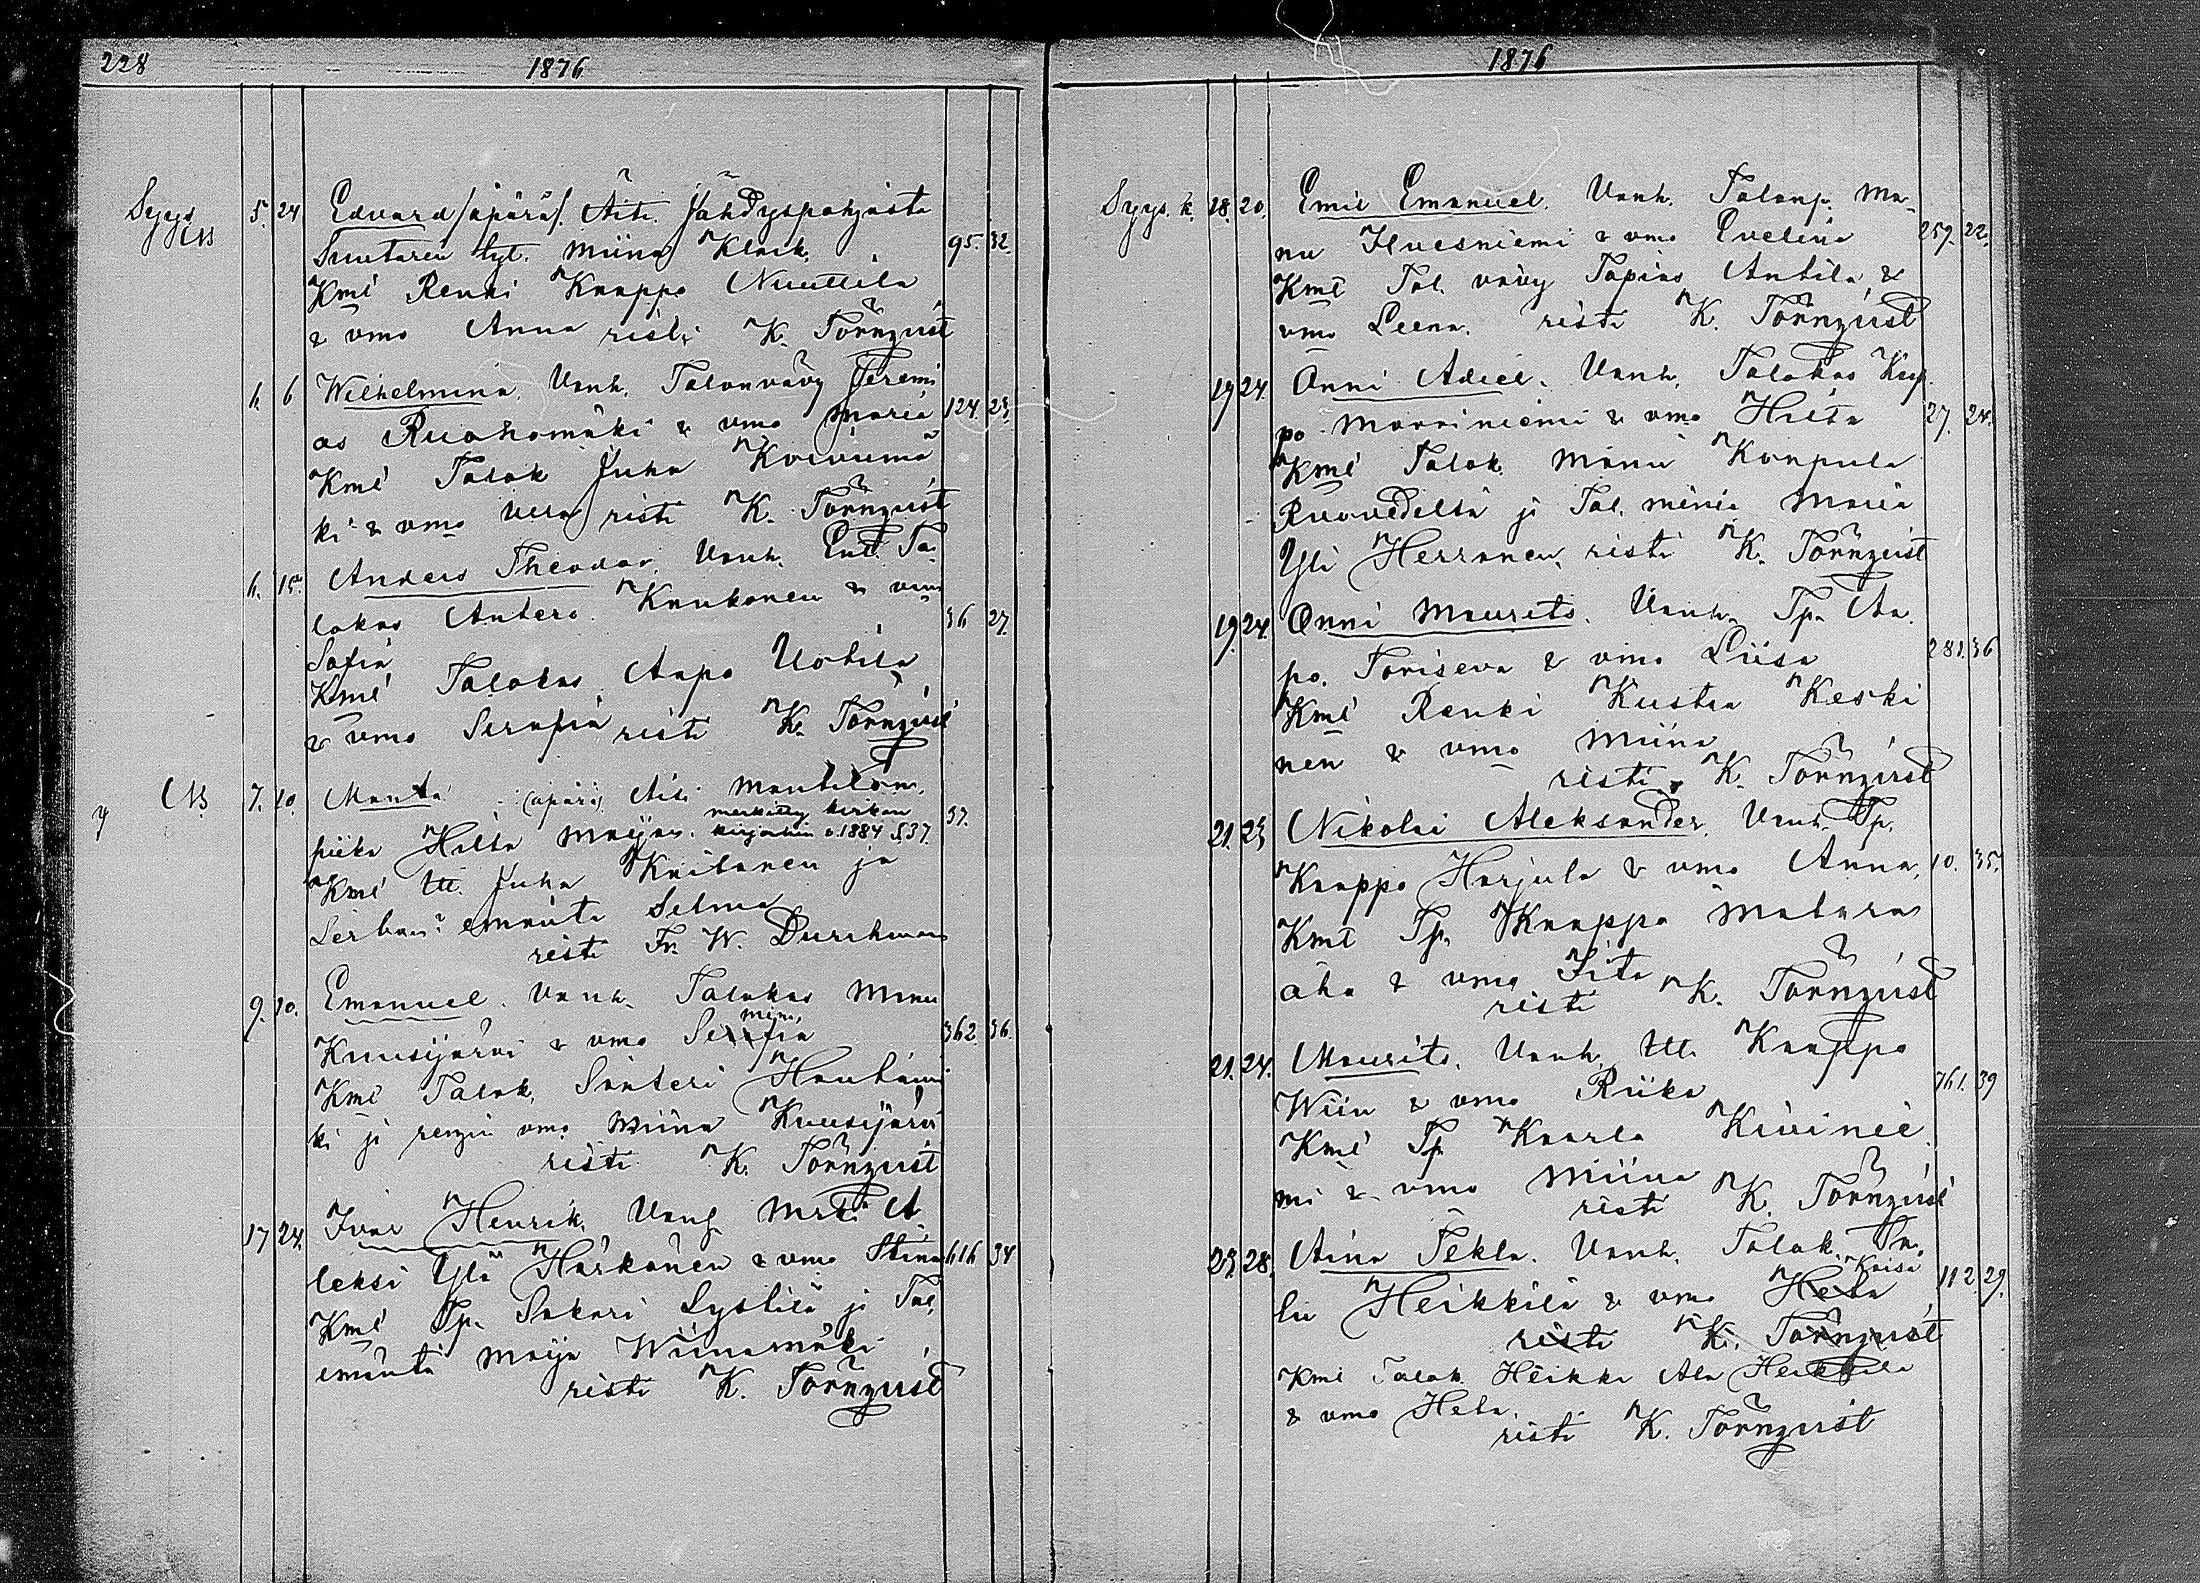 228 1876
Syys 5. 24 Edvard /äpärä/. Äiti Jähdyspohjasta
NB
Suutarin lyt. Miina Klark. 95. 32.
Kmt Renki Kaappo Nuuttila
& vmo Anna risti K. Törnqvist
6. 6 Wilhelmina. Vanh. Talonvävy Jeremi
as Ruohomäki & vmo Maria 124. 23.
Kmt Talok Juha Koiviumä
ki & vmo risti K. Törnqvist
6. 15. Anders Theodor. Vanh. Ent. Ta
lokas Antero Kaukonen & vmo 36 27.
Sofia
Kmt Talokas Aapo Uotila
& vmo Serafia risti K. Törnqvist
NB 7. 10. Manta (äpärä) Äiti Mantilan
piika Hilta Maija. merkitty kirkon
kirjoihin v. 1884 S. 37. 37.
Kmt Itl. Juha Kaitanen ja
emäntä Selma
risti Fr. W. Durchman
9. 10. Emanuel. Vanh. Talokas Manu
Kuusijärvi & vmo Serafia 362. 36.
mim,
Kmt Talok. Santeri Hautamä
ki ja rengin vmo Miina Kuusijärvi
risti K. Törnqvist
17 24. Ivar Henrik. Vanh. A
leksi Ylä Härkönen & vmo Stina 616 34
Kmt Tp. Sakari Lystilä ja Tal.
emäntä Maija Wiinamäki
risti K. Törnqvist
1876
Syys.k. 18. 20. Emil Emanuel. Vanh. Talonp. Ma-
nu Havesniemi & vmo Evelina 259. 22.
Kmt Tal. vävy Topias Antila &
vmo Leena. risti K. Törnqvist
19 24. Onni Adiel. Vanh. Talokas Kaap
po Marriniemi & vmo Hilta 27. 24.
Kmt Talok. Manu Kompula
Ruovedeltä ja Tal. miniä Maria
Yli Herranen, risti K. Törnqvist
19. 24. Onni Maurits. Vanh. Tp. Aa.
po. Toriseva & vmo Liisa 281. 36
Kmt Renki Kustaa Keski
nen & vmo Miina
risti K. Törnqvist
21. 23 Nikolai Aleksander, Vanh. Tp.
Kaappo Harjula & vmo Anna, 10. 35.
Kmt Tp. Kaappo Matara
aho & vmo Iita
risti K. Törnqvist
21. 24. Maurits. Vanh. Itl. Kaappo
Wiin & vmo Riika 761. 39
Kmt Tp Kaarlo Kivinie.
mi & vmo Miina
risti K. Törnqvist
23. 28. Aina Tekla. Vanh. Talok. Sa.
Kaisa
lu Heikkilä & vmo Heta 112. 29.
risti K. Törnqvist
Kmt Talok Heikki Ala Heikkilä
& vmo Heta.
risti K. Törnqvist